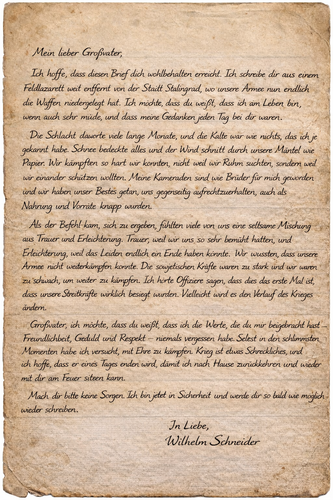 Mein lieber Großvater,
Ich hoffe, dass diesen Brief dich wohlbehalten erreicht. Ich schreibe dir aus einem
Feldlazarett weit entfernt von der Stadt Stalingrad, wo unsere Armee nun endlich
die Waffen niedergelegt hat. Ich möchte, dass du weißt, dass ich am Leben bin,
wenn auch sehr müde, und dass meine Gedanken jeden Tag bei dir waren.
Die Schlacht dauerte viele lange Monate, und die Kälte war wie nichts, das ich je
gekannt habe. Schnee bedeckte alles und der Wind schnitt durch unsere Mäntel wie
Papier. Wir kämpften so hart wir konnten, nicht weil wir Ruhm suchten, sondern weil
wir einander schützen wollten. Meine Kameraden sind wie Brüder für mich geworden
und wir haben unser Bestes getan, uns gegenseitig aufrechtzuerhalten, auch als
Nahrung und Vorräte knapp wurden.
Als der Befehl kam, sich zu ergeben, fühlten viele von uns eine seltsame Mischung
aus Trauer und Erleichterung. Trauer, weil wir uns so sehr bemüht hatten, und
Erleichterung, weil das Leiden endlich ein Ende haben könnte. Wir wussten, dass unsere
Armee nicht weiterkämpfen konnte. Die sowjetischen Kräfte waren zu stark und wir waren
zu schwach, um weiter zu kämpfen. Ich hörte Offiziere sagen, dass dies das erste Mal ist,
dass unsere Streitkräfte wirklich besiegt wurden. Vielleicht wird es den Verlauf des Krieges
ändern.
Großvater, ich möchte, dass du weißt, dass ich die Werte, die du mir beigebracht hast
Freundlichkeit, Geduld und Respekt – niemals vergessen habe. Selbst in den schlimmsten
Momenten habe ich versucht, mit Ehre zu kämpfen. Krieg ist etwas Schreckliches, und
ich hoffe, dass er eines Tages enden wird, damit ich nach Hause zurückkehren und wieder
mit dir am Feuer sitzen kann.
Mach dir bitte keine Sorgen. Ich bin jetzt in Sicherheit und werde dir so bald wie möglich
wieder schreiben.
In Liebe,
Wilhelm Schneider